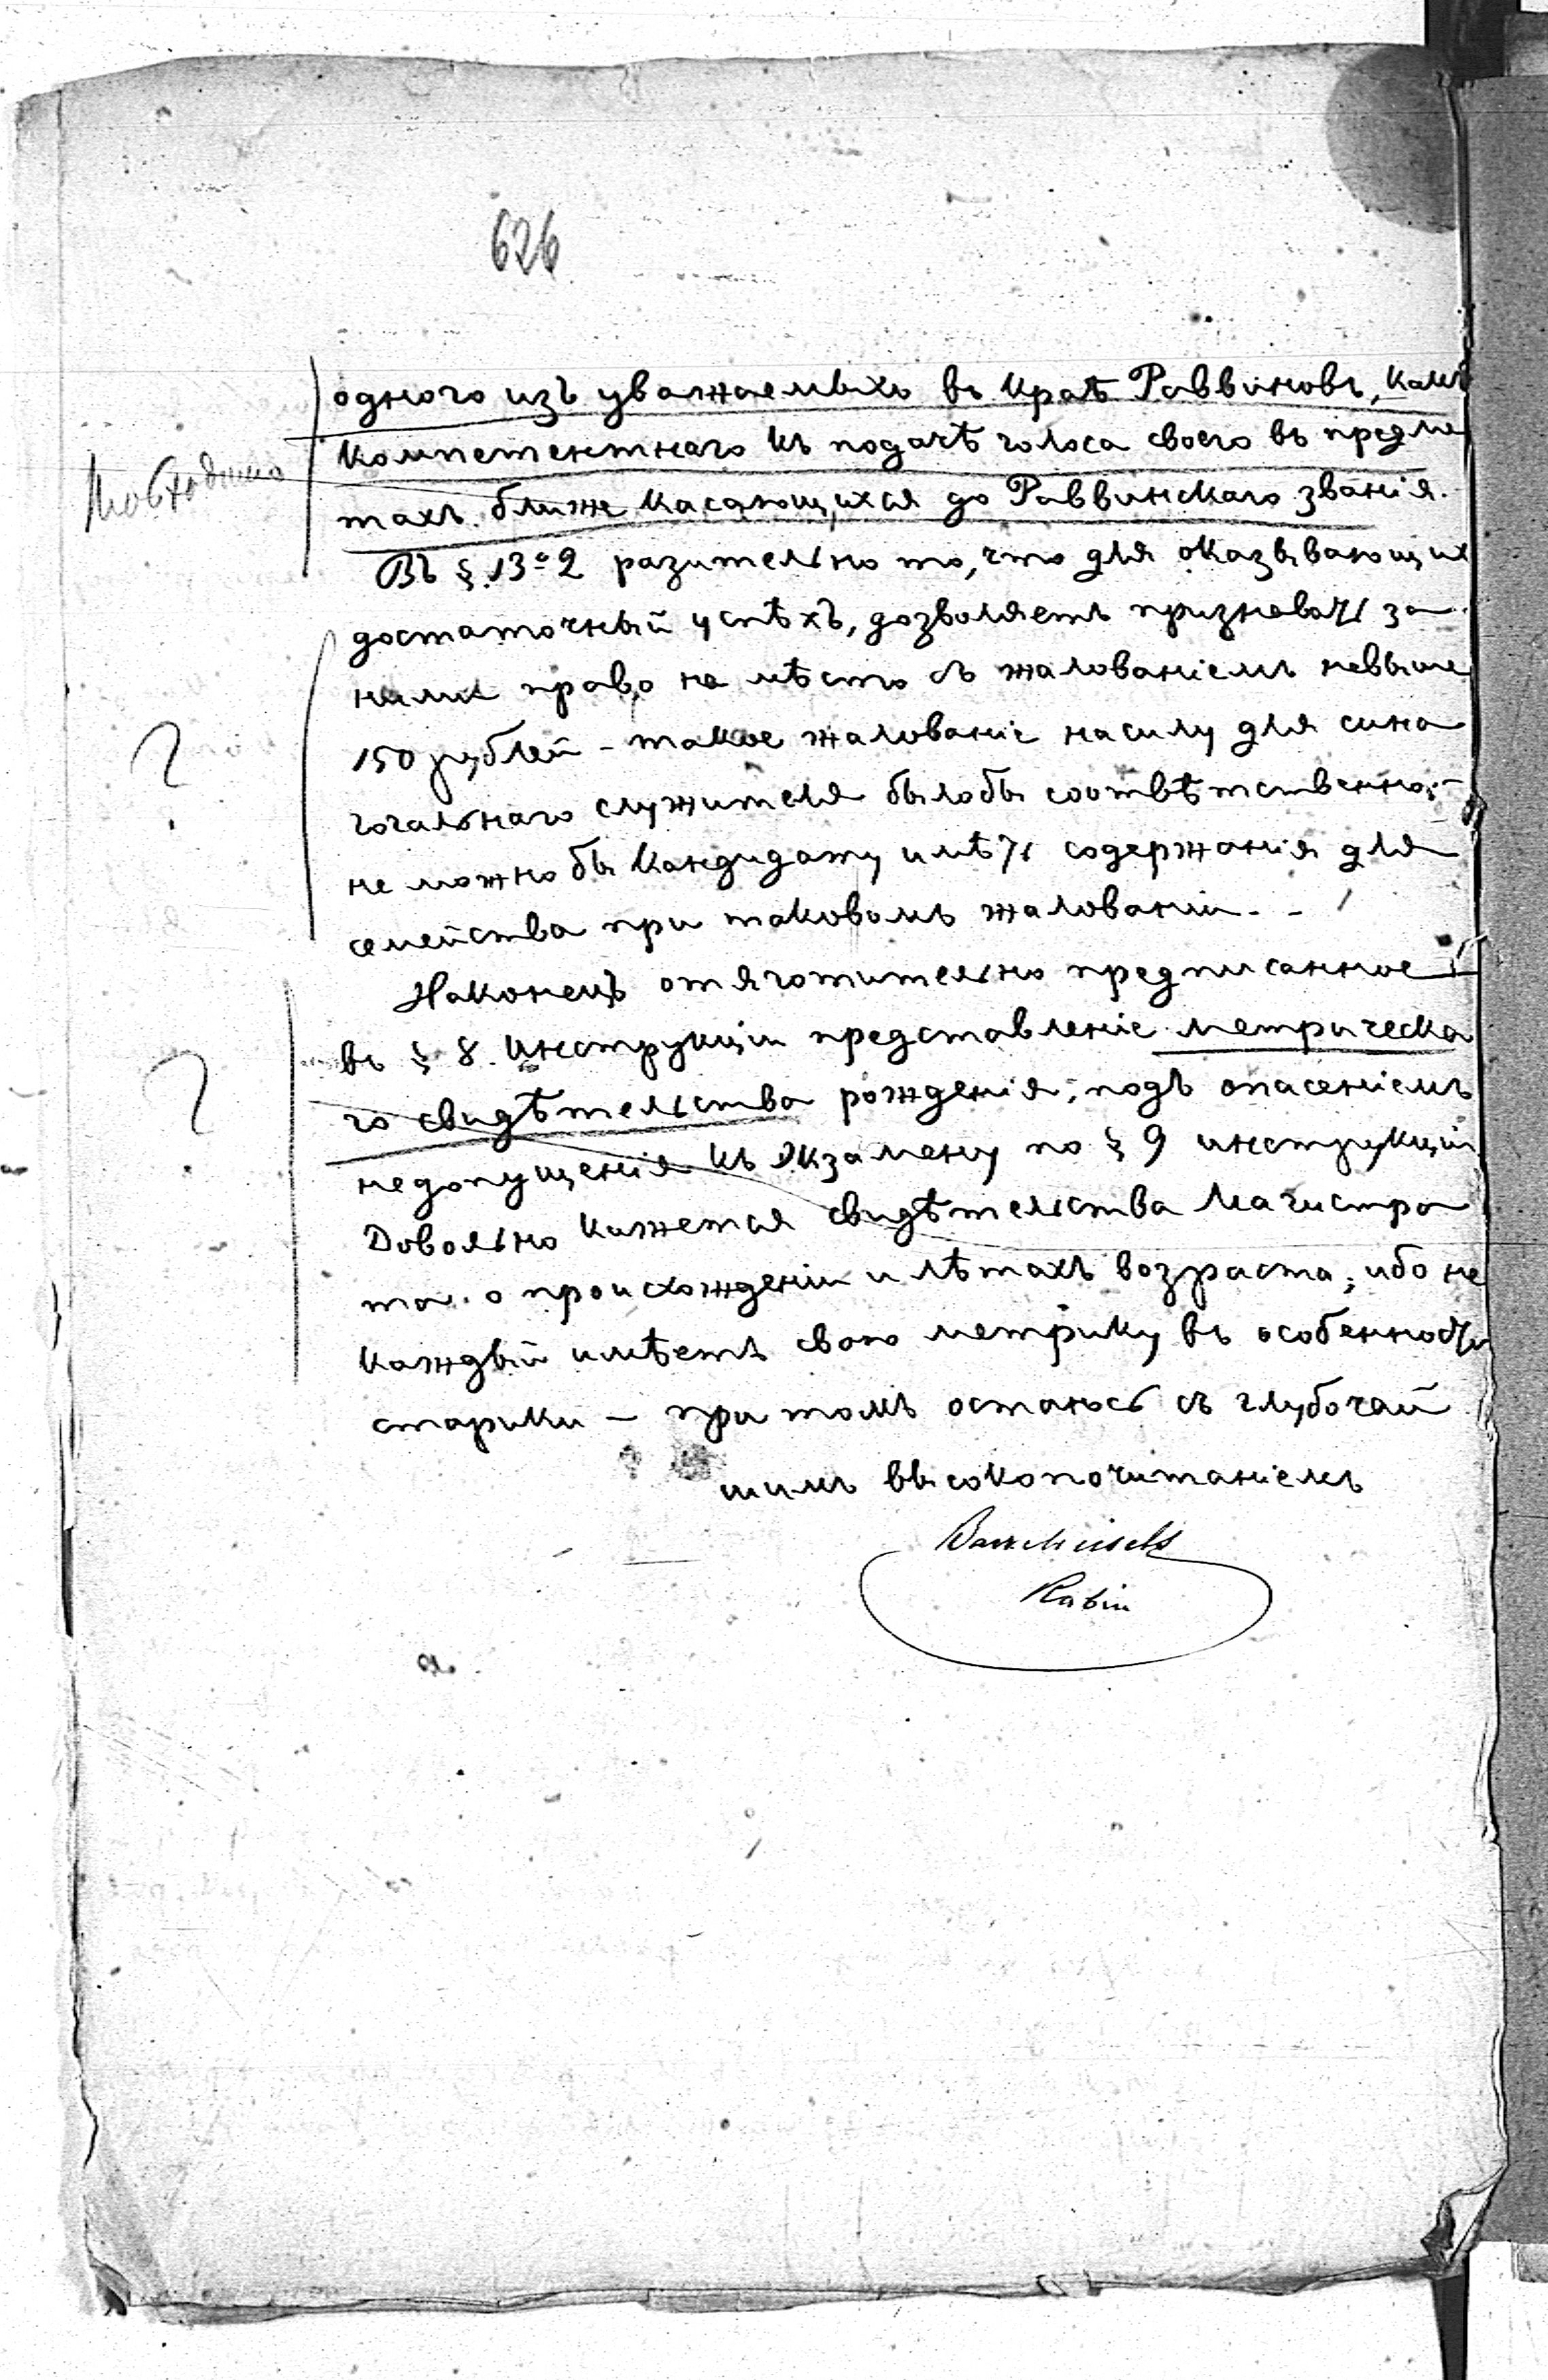 626
одного изъ уважаемыхъ въ Краѣ Раввиновъ, какъ
компетентнаго къ подачѣ голоса своего въ предме
тахъ ближе касающихся до Раввинскаго званія.
Необходимо
Въ § 13º 2 разительно то, что для оказывающих
достаточный успѣхъ, дозволяетъ признавать за
ними право на мѣсто съ жалованіемъ невыше
?
150 рублей – такое жалованіе насилу для сина
гогальнаго служителя былобы соотвѣтственно;
не можно бы Кандидату имѣть содержанія для
семейства при таковомъ жалованіи. –
Наконецъ отяготительно предписанное
въ § 8. Инструкціи представленіе метрическа
?
го свидѣтельства рожденія, подъ опасеніемъ
недопущенія къ экзамену по § 9 инструкціи
Довольно кажется свидѣтельства Магистра
та о происхожденіи и лѣтахъ возраста; ибо не
каждый имѣетъ свою метрику въ особенности
старики – при томъ остаюсь съ глубочай
шимъ высокопочитаніемъ
Ber Meisels
Rabin